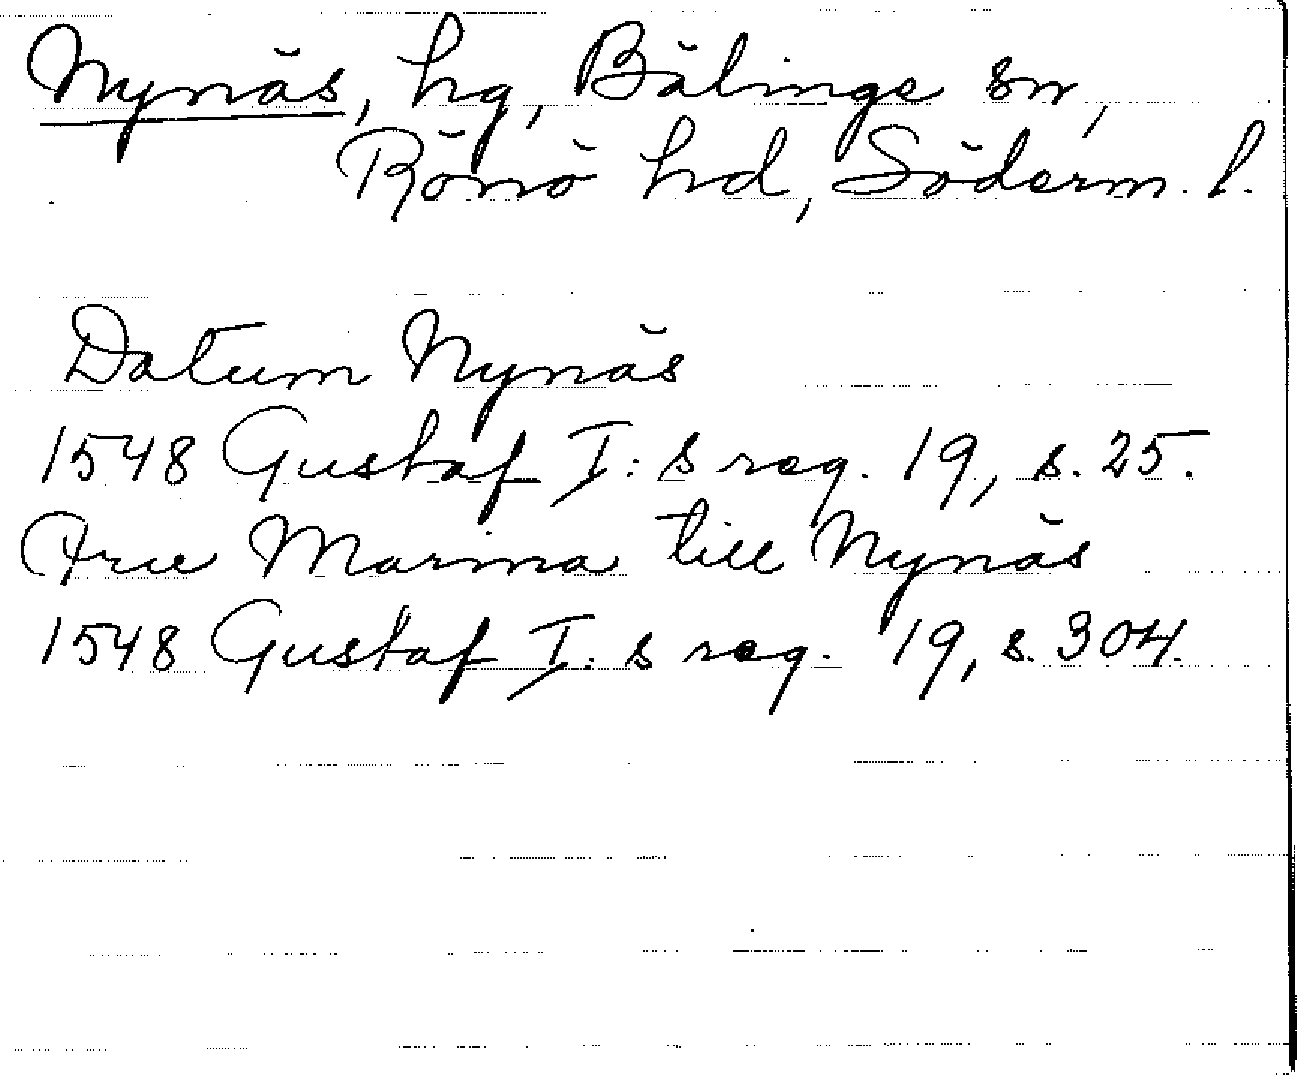 Nynäs, hg, Bälinge sn,
Rönö hd, Söderm. l.
Datum Nynäs
1548 Gustaf I:s reg. 19, s. 25.
Frue Marina till Nynäs
1548 Gustaf I:s reg. 19, s. 304.